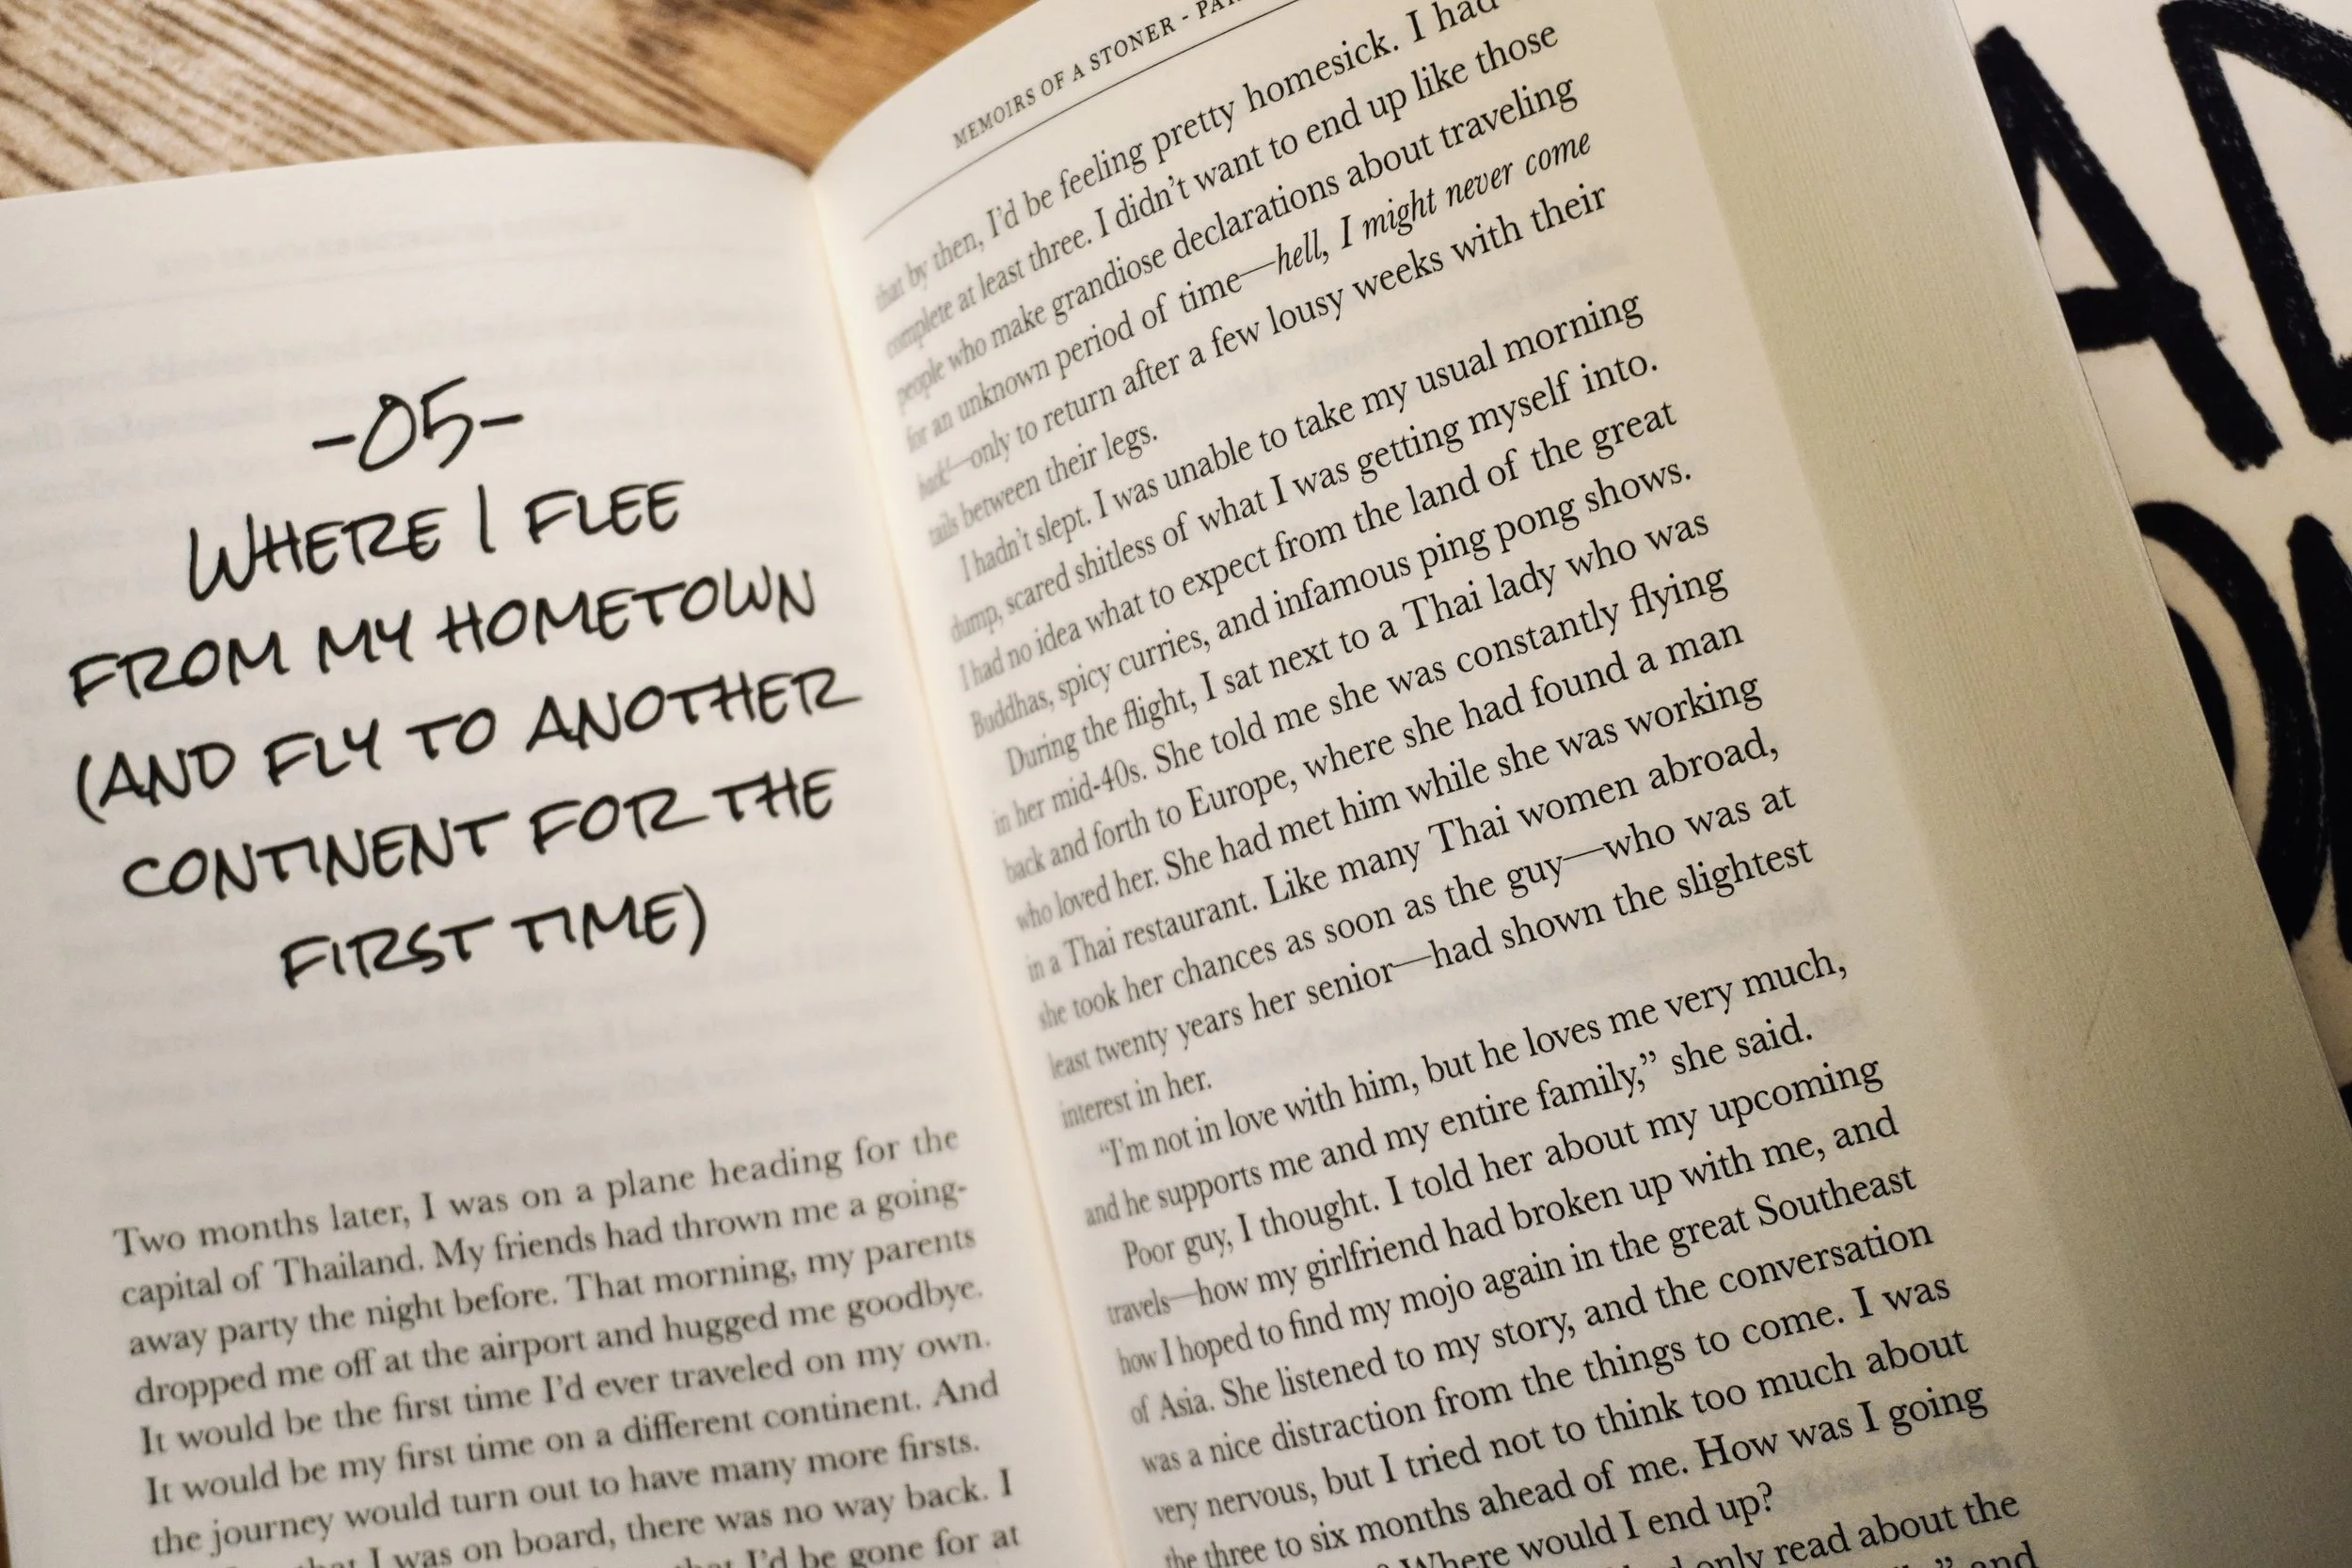 -05-
WHERE I FLEE
FROM MY HOMETOWN
(AND FLY TO ANOTHER
CONTINENT FOR THE
FIRST TIME)
Two months later, I was on a plane heading for the
capital of Thailand. My friends had thrown me a going-
away party the night before. That morning, my parents
dropped me off at the airport and hugged me goodbye.
It would be the first time I’d ever traveled on my own.
It would be my first time on a different continent. And
the journey would turn out to have many more firsts.
that I was on board, there was no way back. I
that I’d be gone for at
MEMOIRS OF A STONER -
that by then, I’d be feeling pretty homesick. I had
complete at least three. I didn’t want to end up like those
people who make grandiose declarations about traveling
for an unknown period of time—hell, I might never come
back!—only to return after a few lousy weeks with their
tails between their legs.
I hadn’t slept. I was unable to take my usual morning
dump, scared shitless of what I was getting myself into.
I had no idea what to expect from the land of the great
Buddhas, spicy curries, and infamous ping pong shows.
During the flight, I sat next to a Thai lady who was
in her mid-40s. She told me she was constantly flying
back and forth to Europe, where she had found a man
who loved her. She had met him while she was working
in a Thai restaurant. Like many Thai women abroad,
she took her chances as soon as the guy—who was at
least twenty years her senior—had shown the slightest
interest in her.
“I’m not in love with him, but he loves me very much,
and he supports me and my entire family,” she said.
Poor guy, I thought. I told her about my upcoming
travels—how my girlfriend had broken up with me, and
how I hoped to find my mojo again in the great Southeast
of Asia. She listened to my story, and the conversation
was a nice distraction from the things to come. I was
very nervous, but I tried not to think too much about
the three to six months ahead of me. How was I going
Where would I end up?
only read about the
and
AD